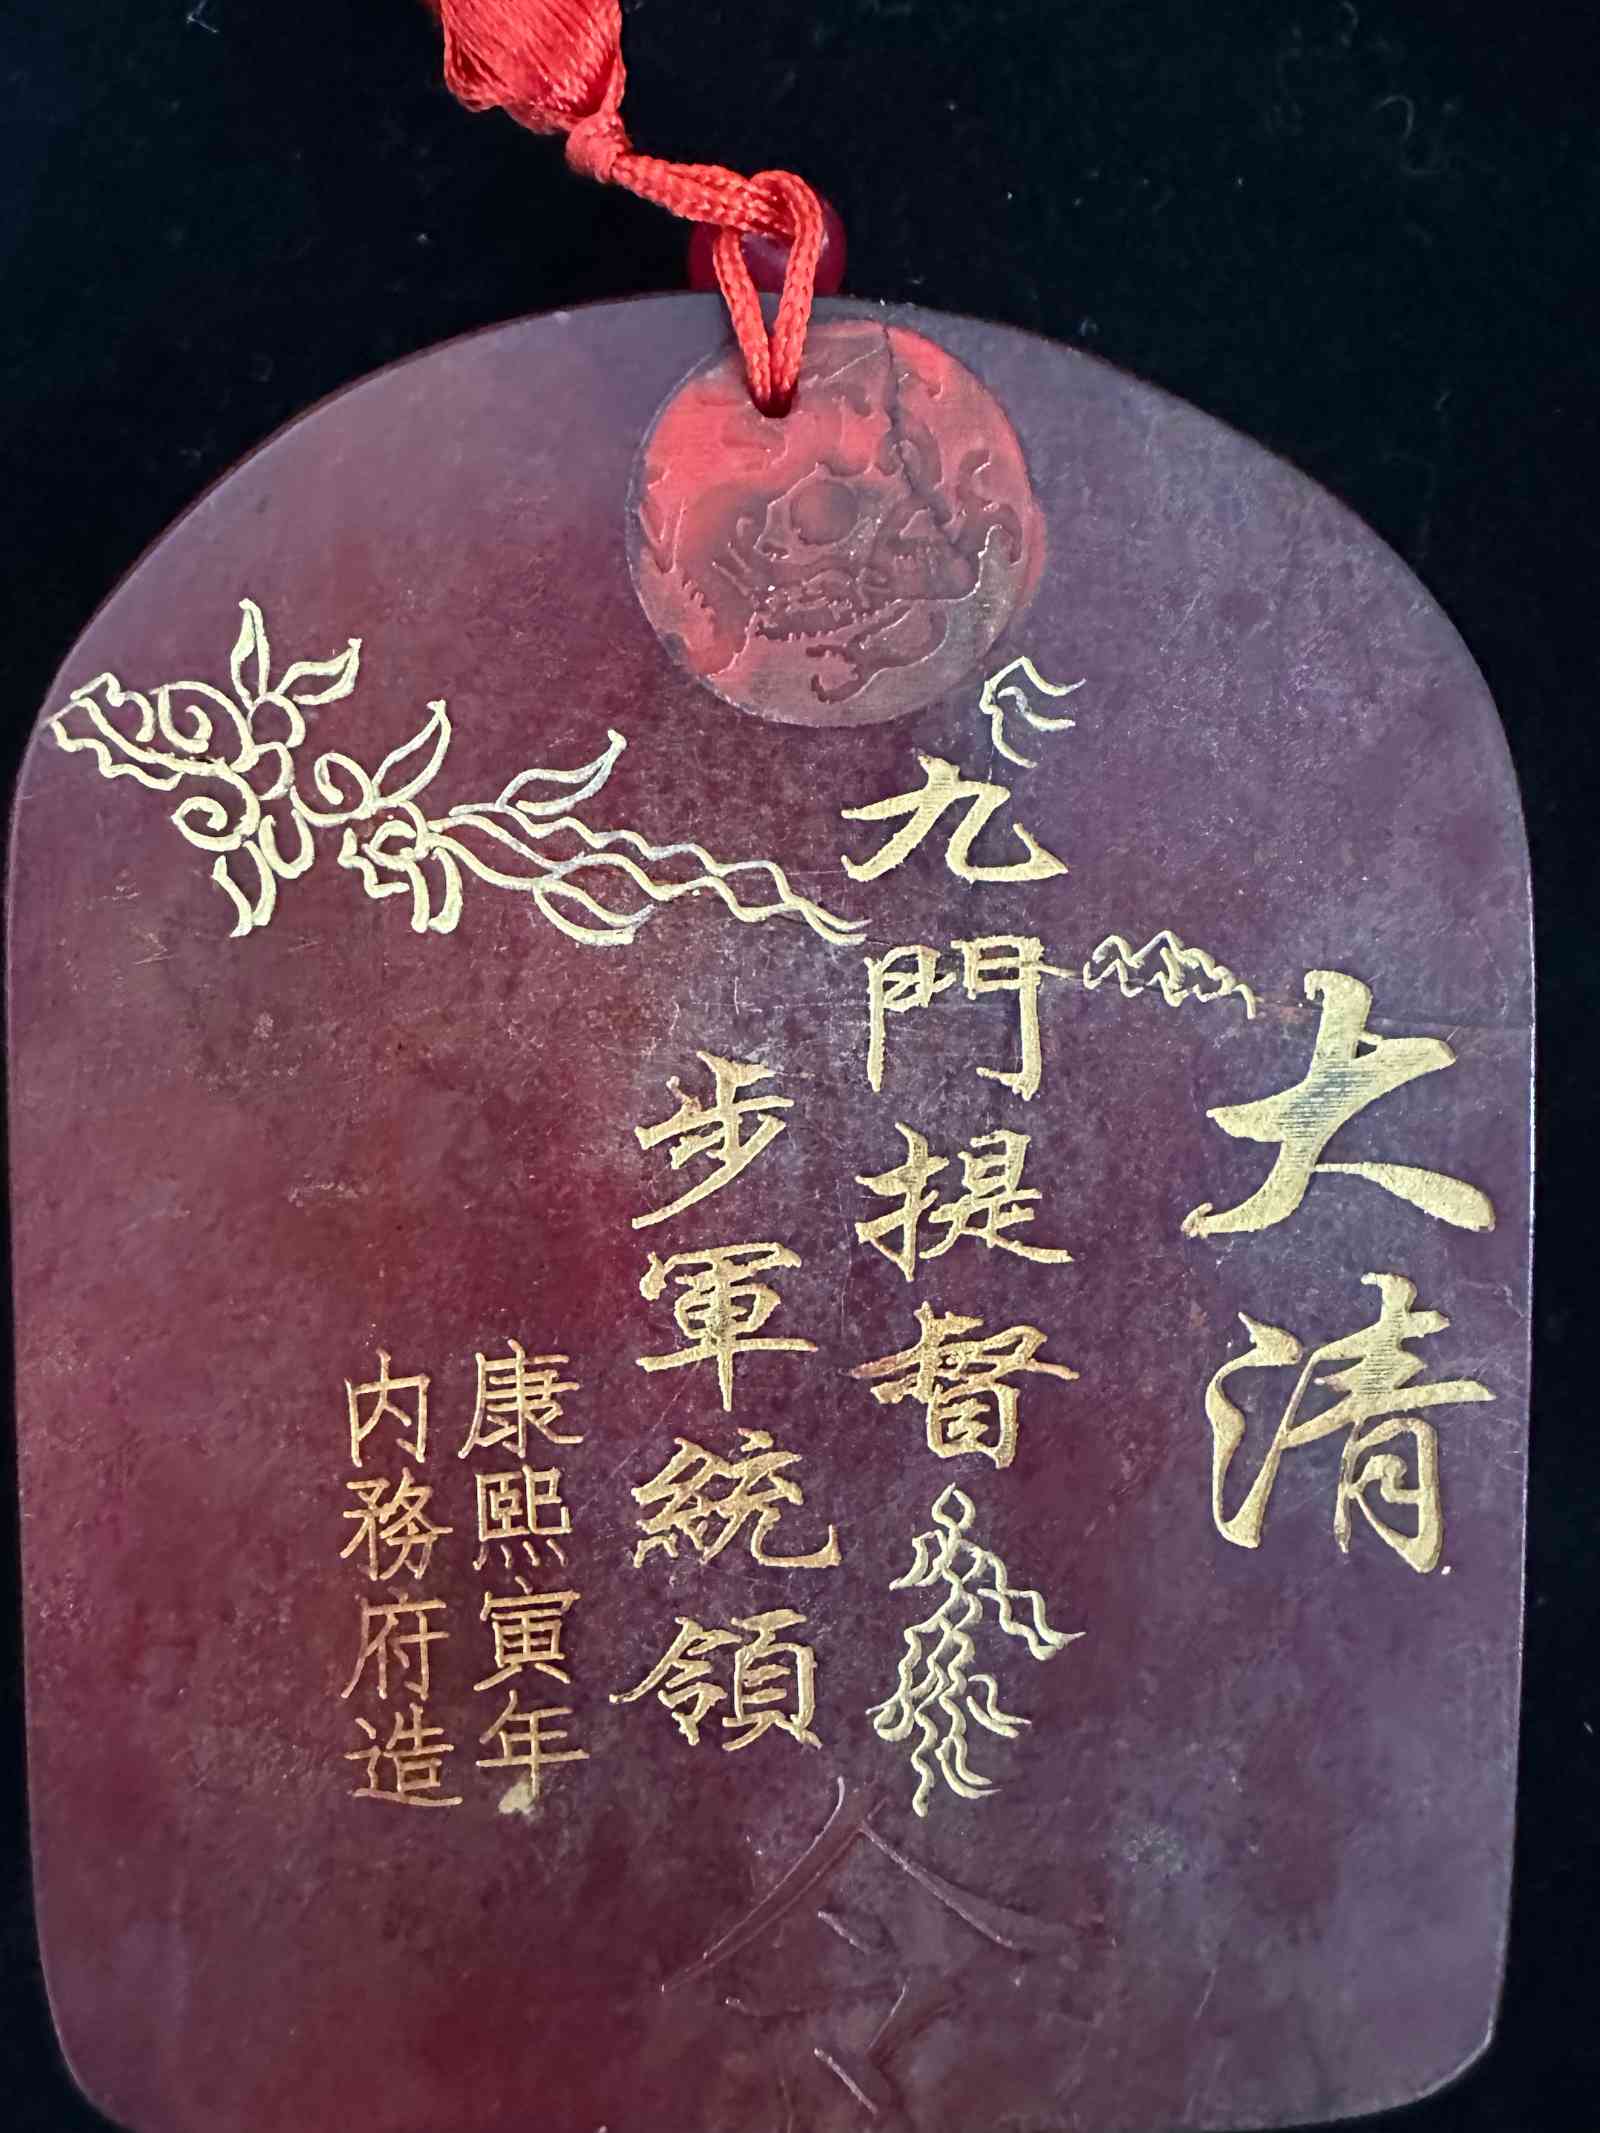 大清
九門提督
步軍統領
康熙寅年
内務府造
令